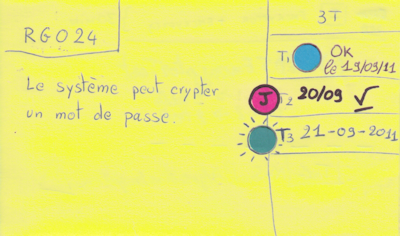 RG024
Le système peut crypter
un mot de passe.
3T
T1 OK
le 19/09/11
J T2 20/09 ✓
T3 21-09-2011